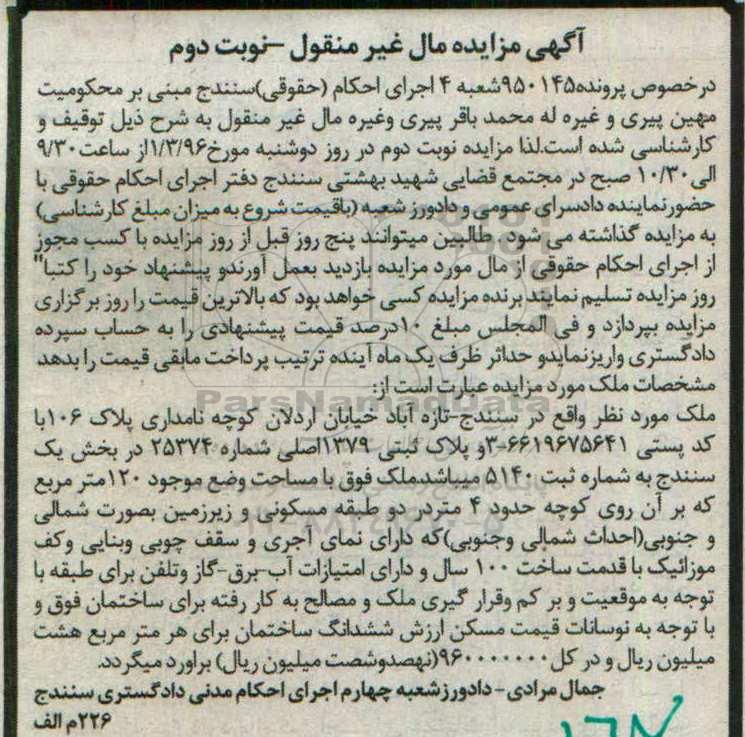 آگهی مزایده مال غیر منقول -نوبت دوم
درخصوص پرونده۹۵۰۱۴۵شعبه ۴ اجرای احکام (حقوقی)سنندج مبنی بر محکومیت
مهین پیری و غیره له محمد باقر پیری وغیره مال غیر منقول به شرح ذیل توقیف و
کارشناسی شده است.لذا مزایده نوبت دوم در روز دوشنبه مورخ۱/۳/۹۶از ساعت۹/۳۰
الی۱۰/۳۰ صبح در مجتمع قضایی شهید بهشتی سنندج دفتر اجرای احکام حقوقی با
حضورنماینده دادسرای عمومی و دادورز شعبه (باقیمت شروع به میزان مبلغ کارشناسی)
به مزایده گذاشته می شود . طالبین میتوانند پنج روز قبل از روز مزایده با کسب مجوز
از اجرای احکام حقوقی از مال مورد مزایده بازدید بعمل آورندو پیشنهاد خود را کتبا"
روز مزایده تسلیم نمایند برنده مزایده کسی خواهد بود که بالاترین قیمت را روز برگزاری
مزایده بپردازد و فی المجلس مبلغ ۱۰درصد قیمت پیشنهادی را به حساب سپرده
دادگستری واریزنمایدو حداثر ظرف یک ماه آینده ترتیب پرداخت مابقی قیمت را بدهد
مشخصات ملک مورد مزایده عبارت است از:
ParsNamadData
ملک مورد نظر واقع در سنندج-تازه آباد خیابان اردلان کوچه نامداری پلاک ۱۰۶با
کد پستی ۶۶۱۹۶۷۵۶۴۱-۳و پلاک ثبتی ۱۳۷۹اصلی شماره ۲۵۳۷۴ در بخش یک
سنندج به شماره ثبت ۵۱۴۰ میباشد.ملک فوق با مساحت وضع موجود ۱۲۰متر مربع
که بر آن روی کوچه حدود ۴ متردر دو طبقه مسکونی و زیرزمین بصورت شمالی
و جنوبی(احداث شمالی وجنوبی)که دارای نمای آجری و سقف چوبی وبنایی وکف
موزائیک با قدمت ساخت ۱۰۰ سال و دارای امتیازات آب-برق-گاز وتلفن برای طبقه با
توجه به موقعیت و بر کم وقرار گیری ملک و مصالح به کار رفته برای ساختمان فوق و
با توجه به نوسانات قیمت مسکن ارزش ششدانگ ساختمان برای هر متر مربع هشت
میلیون ریال و در کل۹۶۰۰۰۰۰۰۰(نهصدوشصت میلیون ریال) براورد میگردد.
جمال مرادی- دادورزشعبه چهارم اجرای احکام مدنی دادگستری سنندج
۲۲۶م الف